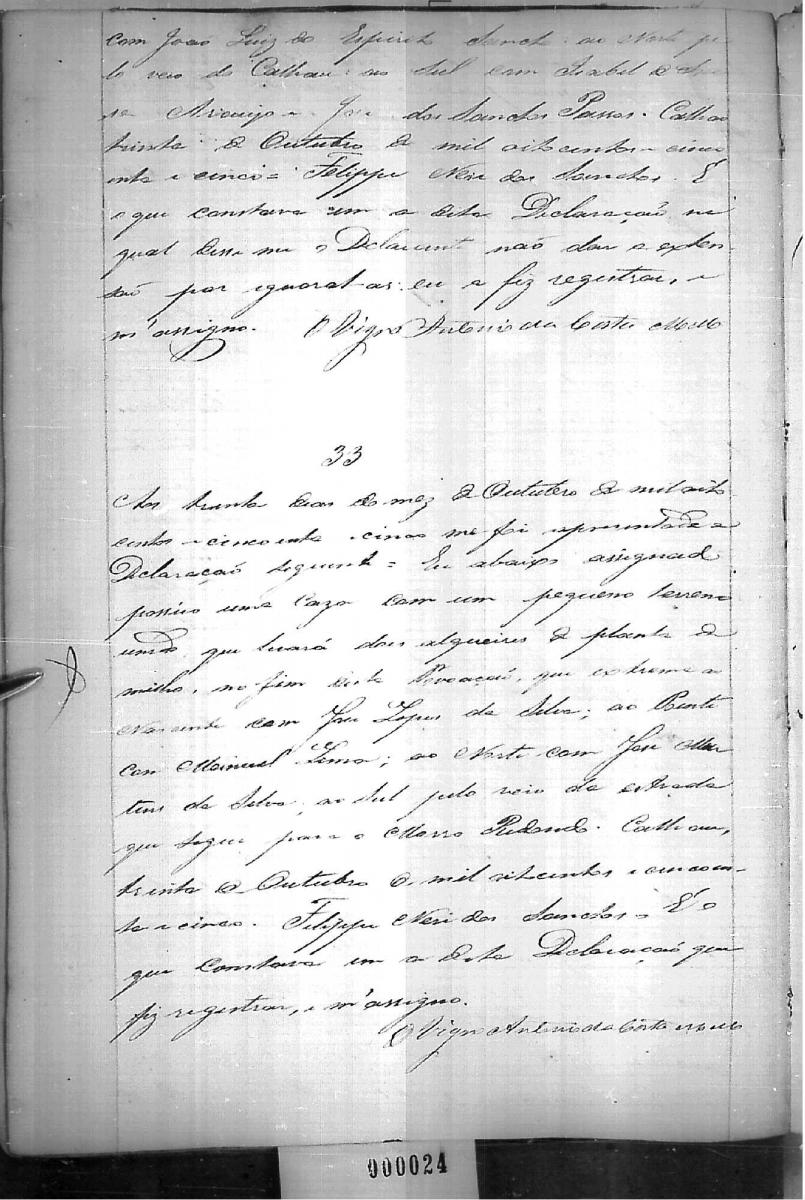 com João Luiz do Espirito Sancto: ao Norte pe-
lo veio do Calhau: ao Sul com Isabel de
Araujo e José dos Sanctos Passos. Calhau
trinta de Outubro de mil oitocentos e cinco
enta e cinco = Felippe Neri dos Sanctos. É
o que constava em a dita Declaração, na
qual disse me o Declarante não dar a exten-
são por ignoral-as: eu a fiz registrar, e
m'assigno. O Vigrº Antonio da Costa Mello
33
Aos trinta dias do mez de Outubro de mil oito
centos e cincoenta e cinco me foi apresentada a
Declaração seguinte = Eu abaixo assignado
possuo uma caza com um pequeno terreno
unido, que levará dous alqueires de planta de
milho, no fim desta Povoação, que extrema ao
Nascente com José Lopes da Silva; ao Poente
com Manuel Lima; ao Norte com José Mar
tins da Silva; ao Sul pelo veio da estrada
que segue para o Morro Redondo. Calhau,
trinta de Outubro de mil oitocentos e cincoen-
ta e cinco. Felippe Neri dos Sanctos = É o
que constava em a dita Declaração que
fiz registrar, e m'assigno.
O Vigrº Antonio da Costa Mello
000024